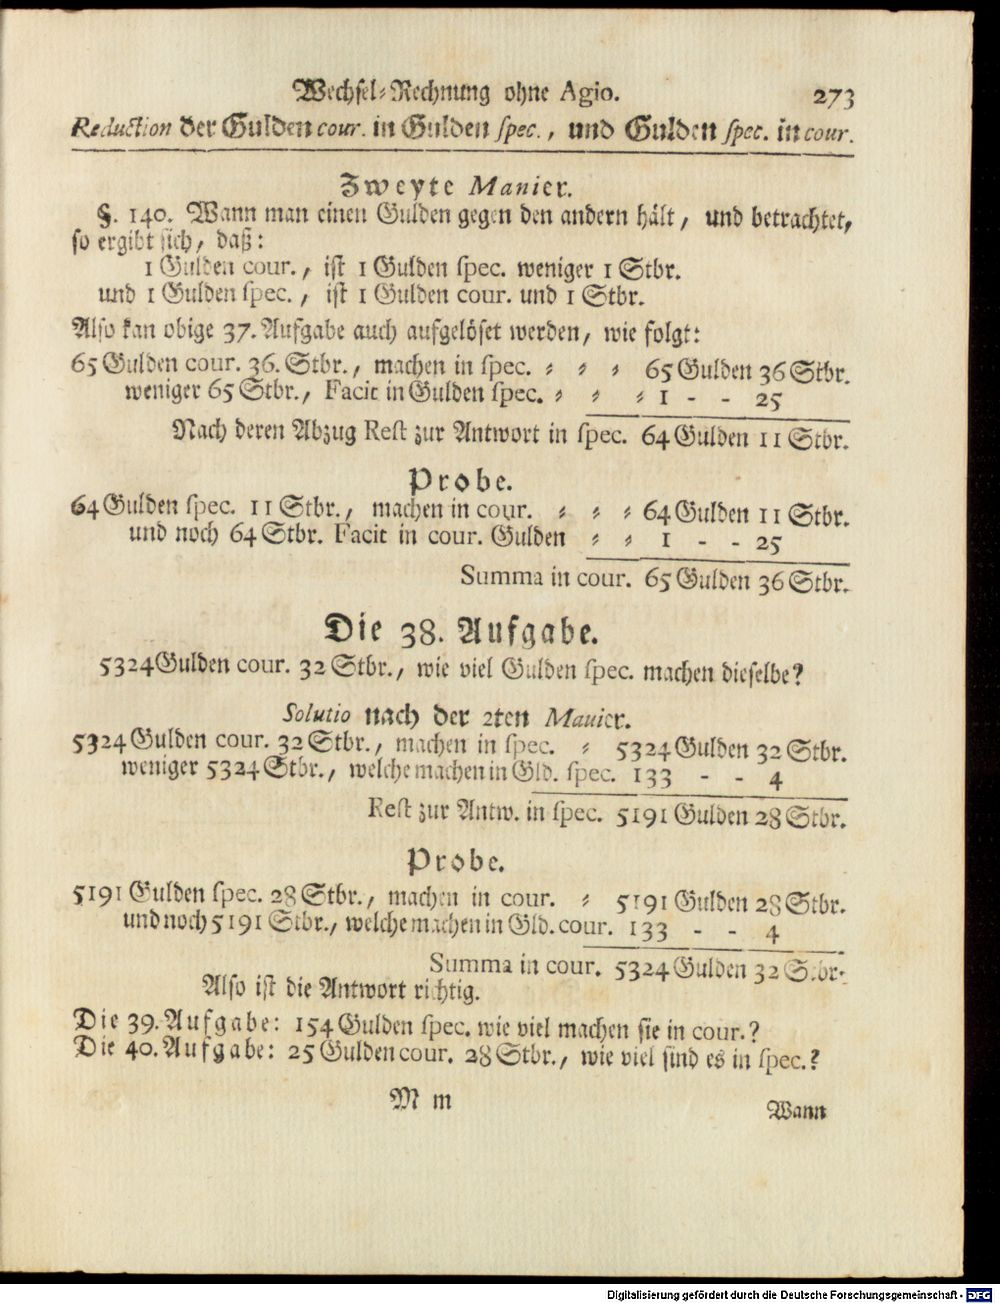 Wechsel-Rechnung ohne Agio. 273
Reduction der Gulden cour. in Gulden spec., und Gulden spec. in cour.
Zweyte Manier.
§. 140. Wann man einen Gulden gegen den andern hält, und betrachtet,
so ergibt sich, daß:
1 Gulden cour., ist 1 Gulden spec. weniger 1 Stbr.
und 1 Gulden spec., ist 1 Gulden cour. und 1 Stbr.
Also kan obige 37. Aufgabe auch aufgelöset werden, wie folgt:
65 Gulden cour. 36. Stbr., machen in spec. = = = 65 Gulden 36 Stbr.
weniger 65 Stbr., Facit in Gulden spec. = = = 1 - - 25
Nach deren Abzug Rest zur Antwort in spec. 64 Gulden 11 Stbr.
Probe.
64 Gulden spec. 11 Stbr., machen in cour. = = = 64 Gulden 11 Stbr.
und noch 64 Stbr. Facit in cour. Gulden = = 1 - - 25
Summa in cour. 65 Gulden 36 Stbr.
Die 38. Aufgabe.
5324 Gulden cour. 32 Stbr., wie viel Gulden spec. machen dieselbe?
Solutio nach der 2ten Manier.
5324 Gulden cour. 32 Stbr., machen in spec. = 5324 Gulden 32 Stbr.
weniger 5324 Stbr., welche machen in Gld. spec. 133 - - 4
Rest zur Antw. in spec. 5191 Gulden 28 Stbr.
Probe.
5191 Gulden spec. 28 Stbr., machen in cour. = 5191 Gulden 28 Stbr.
und noch 5191 Stbr., welche machen in Gld. cour. 133 - - 4
Summa in cour. 5324 Gulden 32 Stbr.
Also ist die Antwort richtig.
Die 39. Aufgabe: 154 Gulden spec. wie viel machen sie in cour.?
Die 40. Aufgabe: 25 Gulden cour. 28 Stbr., wie viel sind es in spec.?
M m
Wann
Digitalisierung gefördert durch die Deutsche Forschungsgemeinschaft - DFG